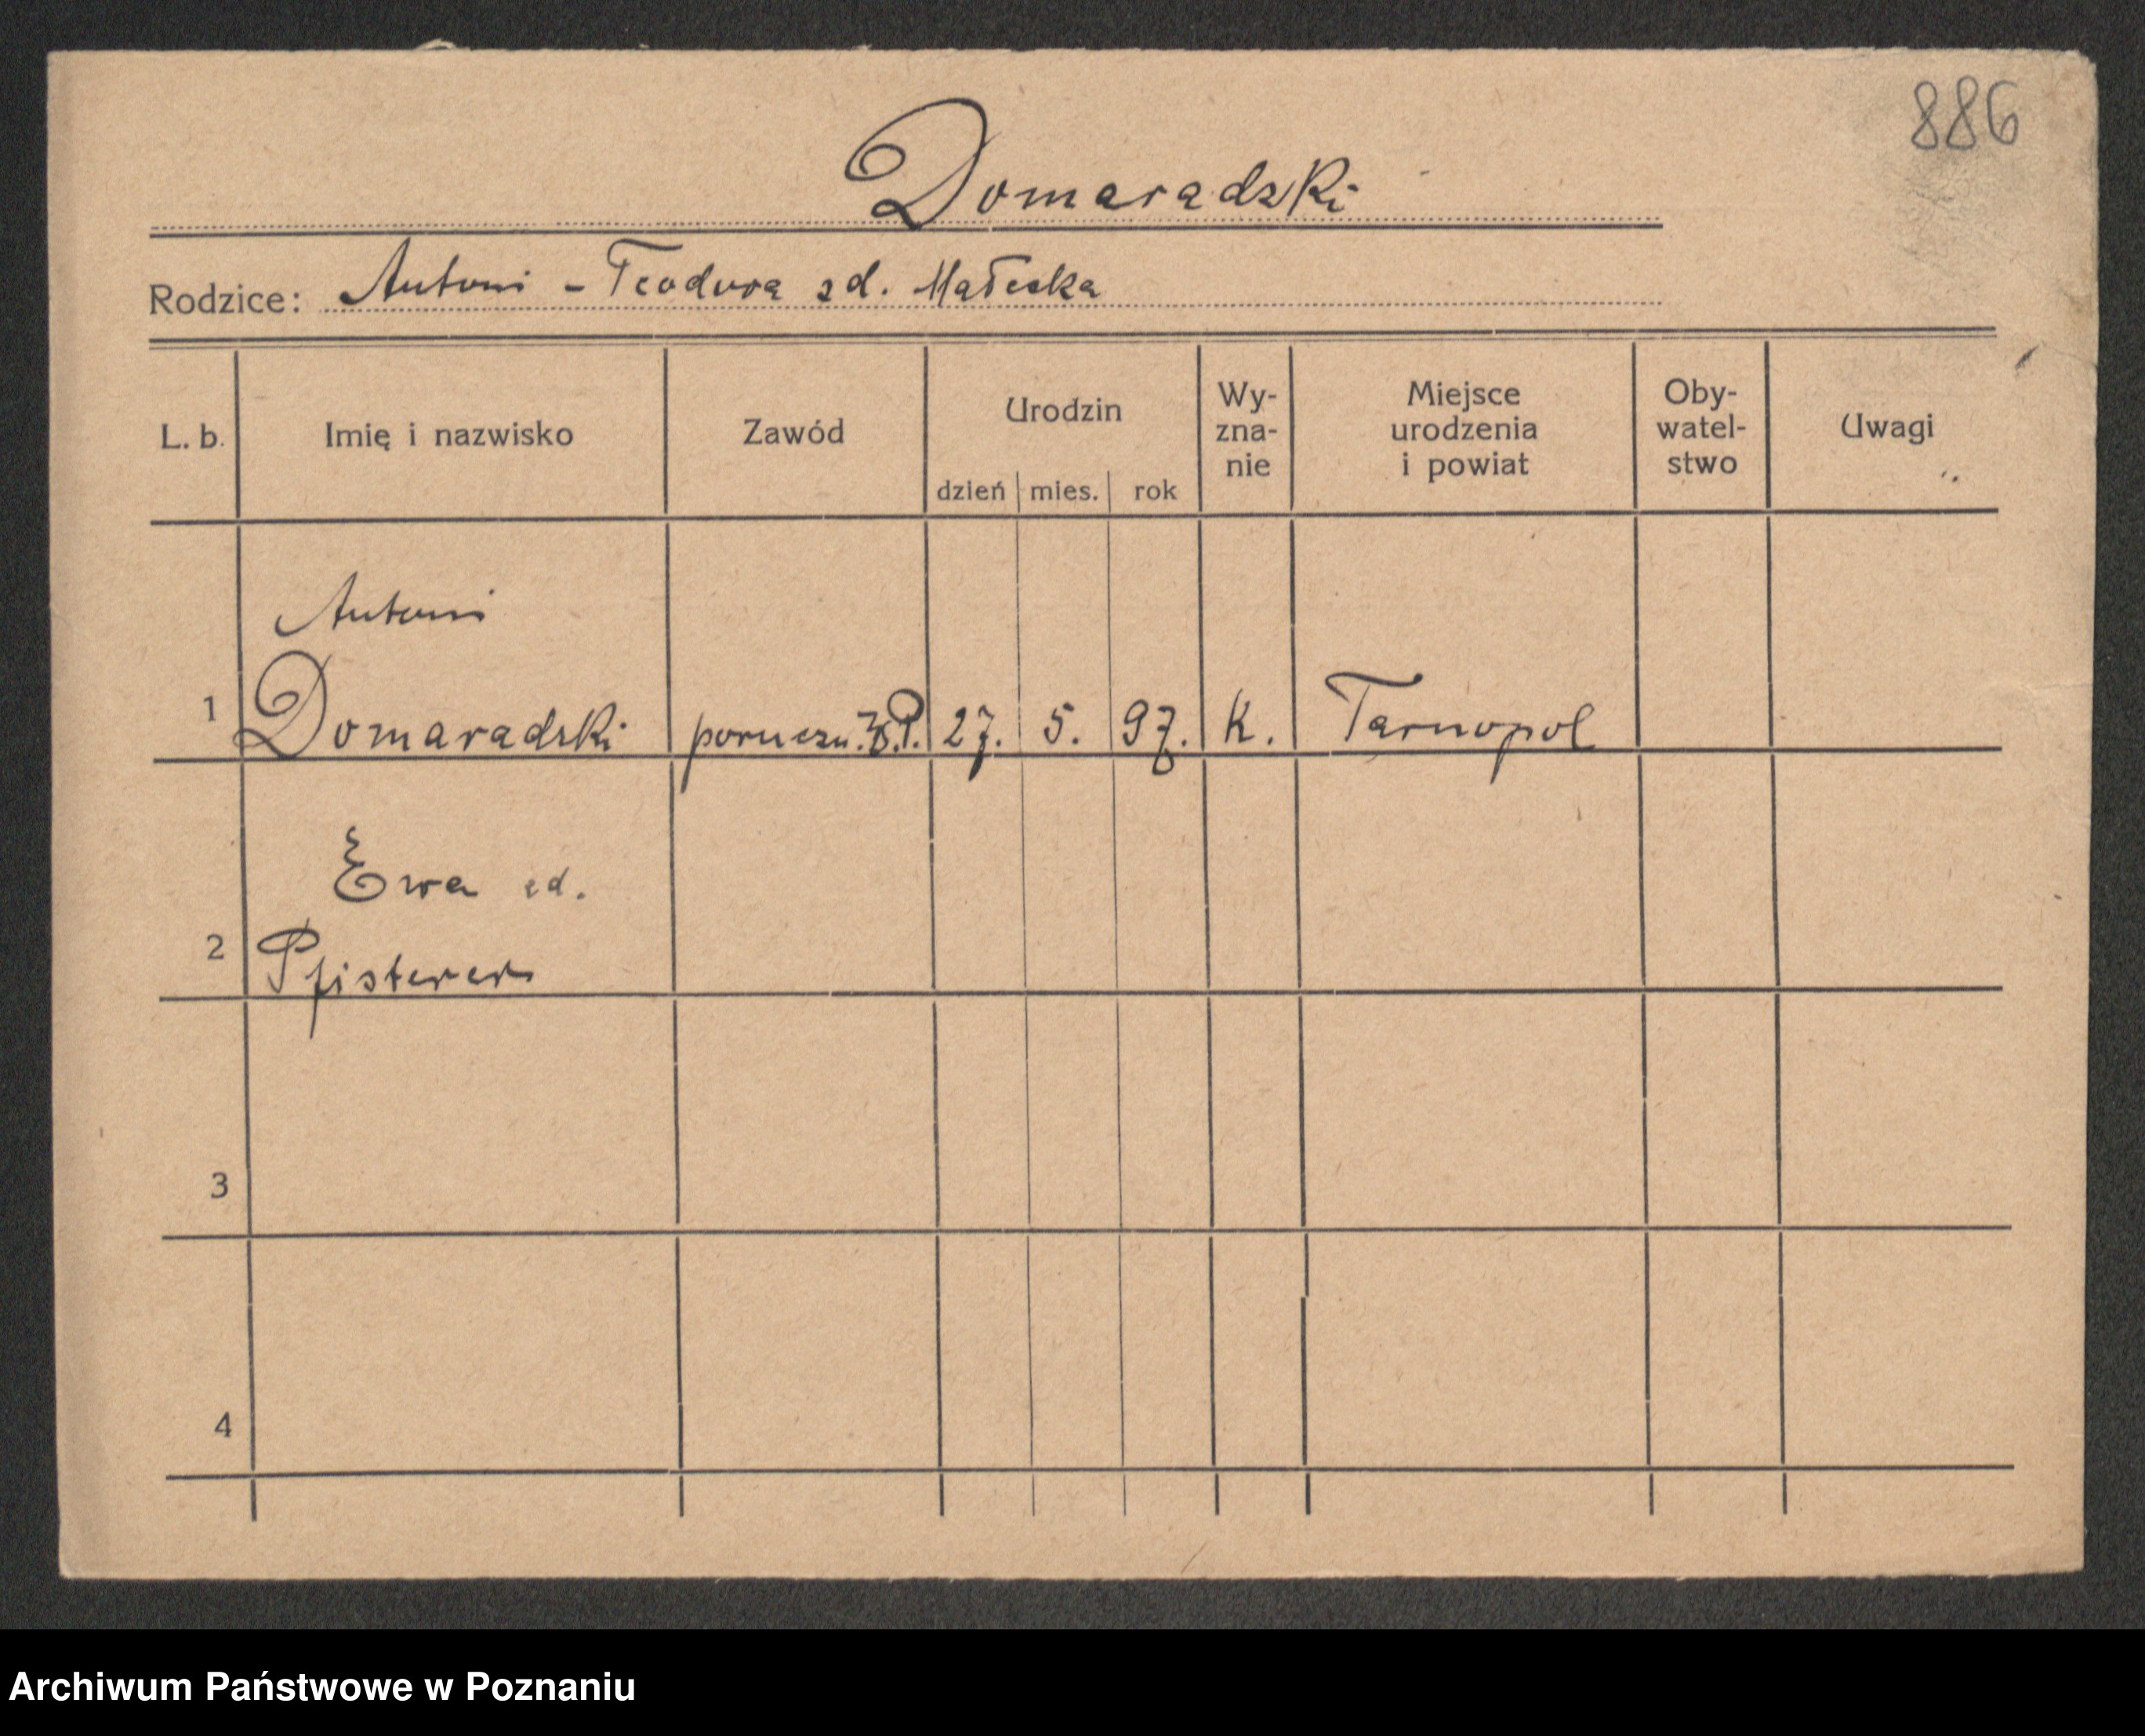 886
Domaradzki
Rodzice: Antoni - Teodora zd. Małecka
L. b. Imię i nazwisko Zawód Urodzin dzień mies. rok Wy-
zna-
nie Miejsce
urodzenia
i powiat Oby-
watel-
stwo Uwagi
Antoni
1 Domaradzki poruczn. W.P. 27. 5. 97. K. Tarnopol
Ewa zd.
2 Pfisterer
3
4
Archiwum Państwowe w Poznaniu